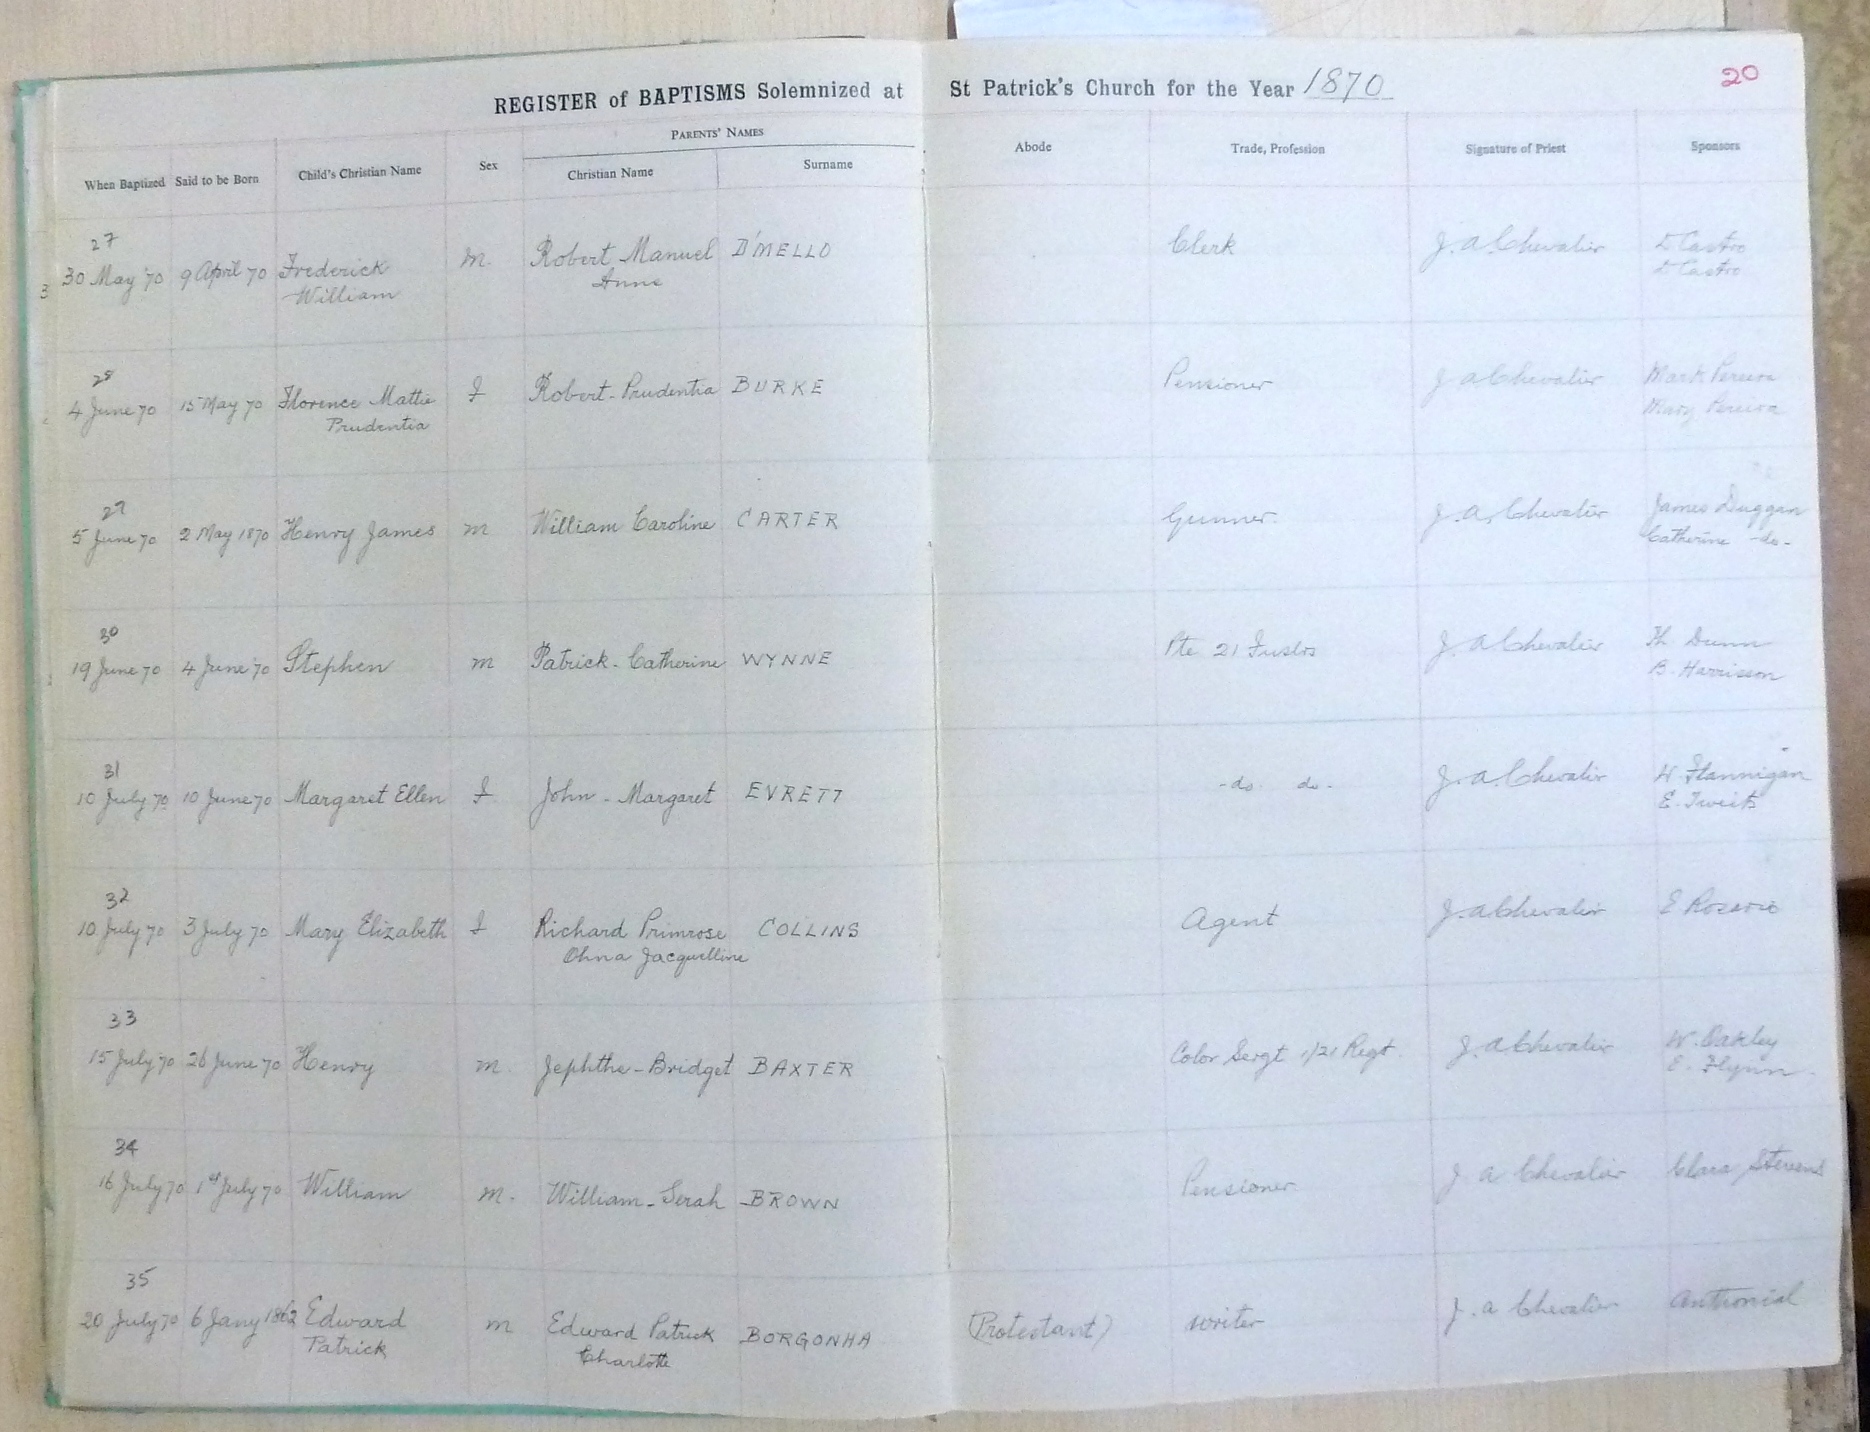 REGISTER of BAPTISMS Solemnized at St Patrick's Church for the Year 1870
20
When Baptized Said to be Born Child's Christian Name Sex PARENTS' NAMES Christian Name Surname Abode Trade, Profession Signature of Priest Sponsors
27
30 May '70 9 April 70 Frederick M. Robert Manuel D'MELLO Clerk J. A. Chevalier D Castro
William Anne D Castro
28
4 June 70 15 May 70 Florence Mattie F Robert - Prudentia BURKE Pensioner J A Chevalier Mark Pereira
Prudentia Mary Pereira
29
5 June 70 2 May 1870 Henry James M William Caroline CARTER Gunner. J. A. Chevalier James Duggan
Catherine -do-
30
19 June 70 4 June '70 Stephen M Patrick - Catherine WYNNE Pte 21 Fuslrs J. A Chevalier Th Dunn
B. Harrisson
31
10 July 70 10 June 70 Margaret Ellen F John - Margaret EVRETT -do. do. J. A. Chevalier W. Flannigan
E.
32
10 July 70 3 July 70 Mary Elizabeth F Richard Primrose COLLINS Agent J. A Chevalier E Rosario
Ohna Jacquelline
33
15 July 70 26 June 70 Henry M. Jephthe - Bridget BAXTER Color Sergt 1/21 Regt. J. A Chevalier W. Oakley
E. Flynn.
34
16 July 70 1st July 70 William M. William - Serah BROWN Pensioner J A Chevalier Clara Stevens
35
20 July 70 6 Jany 1862 Edward M Edward Patrick BORGONHA (Protestant) writer J. A Chevalier
Patrick Charlotte